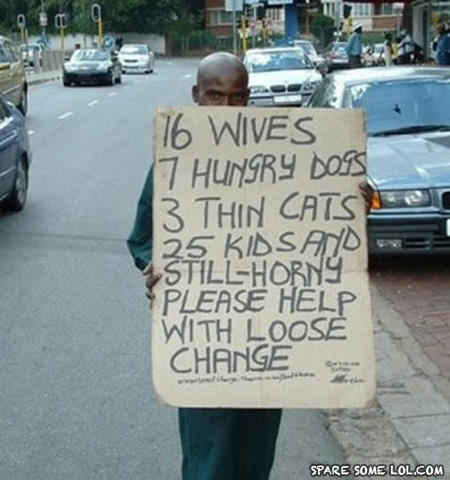 16 WIVES
7 HUNGRY DOGS
3 THIN CATS
25 KIDS AND
STILL-HORNY
PLEASE HELP
WITH LOOSE
CHANGE
SPARE SOME LOL.COM